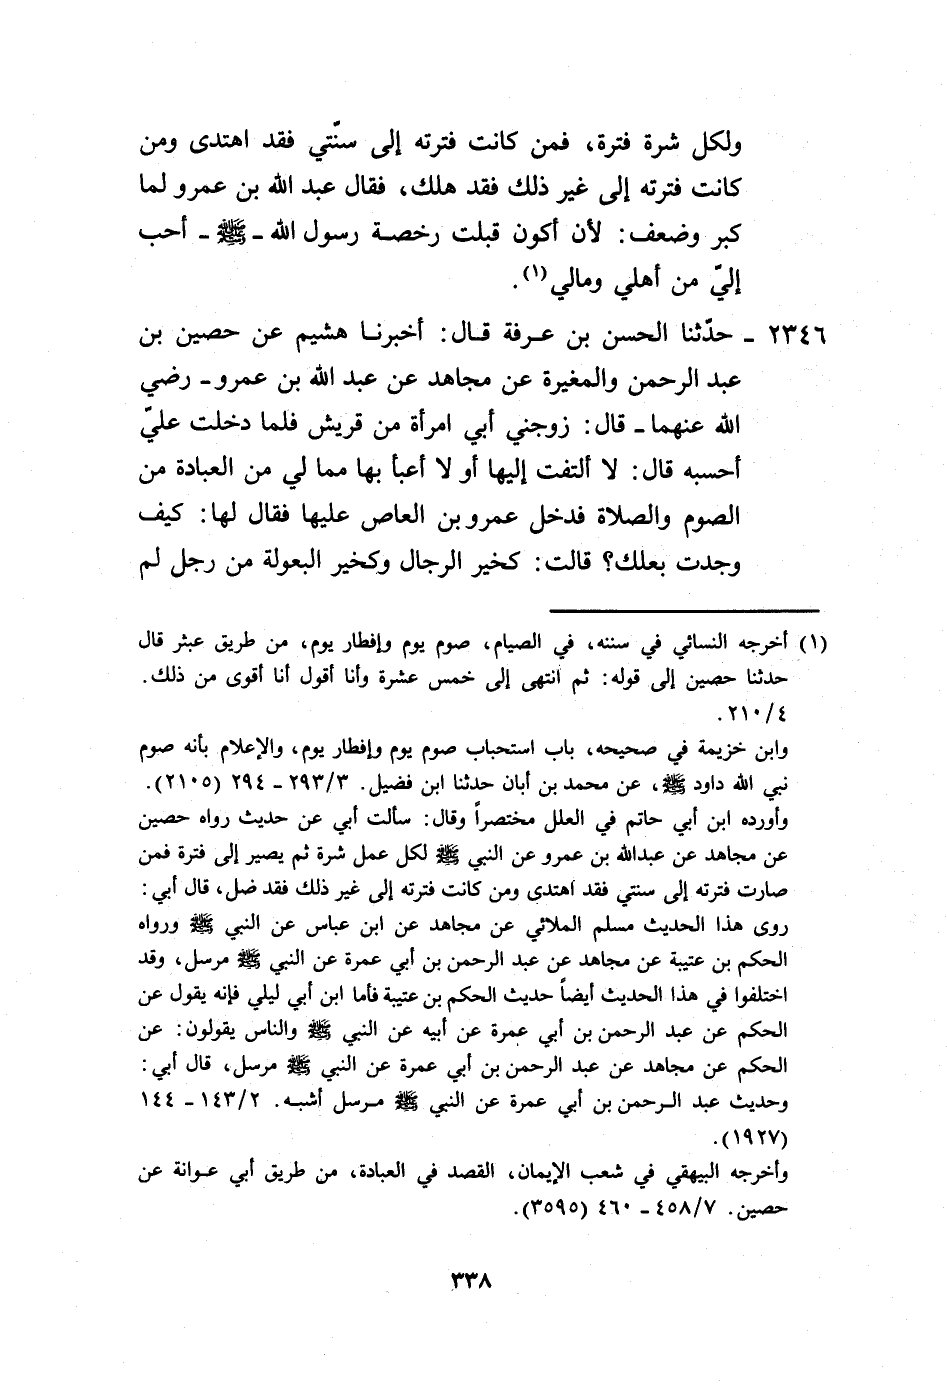 ولكل شرة فترة، فمن كانت فترته إلى سنّتي فقد اهتدى ومن
كانت فترته إلى غير ذلك فقد هلك، فقال عبد الله بن عمرو لما
كبر وضعف: لأن أكون قبلت رخصة رسول الله ـ ﷺ ـ أحب
إليّ من أهلي ومالي(١).
٢٣٤٦ ـ حدّثنا الحسن بن عرفة قال: أخبرنا هشيم عن حصين بن
عبد الرحمن والمغيرة عن مجاهد عن عبد الله بن عمرو ـ رضي
الله عنهما ـ قال: زوجني أبي امرأة من قريش فلما دخلت عليّ
أحسبه قال: لا ألتفت إليها أو لا أعبأ بها مما لي من العبادة من
الصوم والصلاة فدخل عمرو بن العاص عليها فقال لها: كيف
وجدت بعلك؟ قالت: كخير الرجال وكخير البعولة من رجل لم
(١) أخرجه النسائي في سننه، في الصيام، صوم يوم وإفطار يوم، من طريق عبثر قال
حدثنا حصين إلى قوله: ثم انتهى إلى خمس عشرة وأنا أقول أنا أقوى من ذلك.
٢١٠/٤.
وابن خزيمة في صحيحه، باب استحباب صوم يوم وإفطار يوم، والإعلام بأنه صوم
نبي الله داود ﷺ، عن محمد بن أبان حدثنا ابن فضيل. ٢٩٣/٣ ـ ٢٩٤ (٢١٠٥).
وأورده ابن أبي حاتم في العلل مختصراً وقال: سألت أبي عن حديث رواه حصين
عن مجاهد عن عبدالله بن عمرو عن النبي ﷺ لكل عمل شرة ثم يصير إلى فترة فمن
صارت فترته إلى سنتي فقد اهتدى ومن كانت فترته إلى غير ذلك فقد ضل، قال أبي:
روى هذا الحديث مسلم الملائي عن مجاهد عن ابن عباس عن النبي ﷺ ورواه
الحكم بن عتيبة عن مجاهد عن عبد الرحمن بن أبي عمرة عن النبي ﷺ مرسل، وقد
اختلفوا في هذا الحديث أيضاً حديث الحكم بن عتيبة فأما ابن أبي ليلي فإنه يقول عن
الحكم عن عبد الرحمن بن أبي عمرة عن أبيه عن النبي ﷺ والناس يقولون: عن
الحكم عن مجاهد عن عبد الرحمن بن أبي عمرة عن النبي ﷺ مرسل، قال أبي:
وحديث عبد الرحمن بن أبي عمرة عن النبي ﷺ مرسل أشبه. ١٤٣/٢ ـ ١٤٤
(١٩٢٧).
وأخرجه البيهقي في شعب الإيمان، القصد في العبادة، من طريق أبي عوانة عن
حصين. ٤٥٨/٧ ـ ٤٦٠ (٣٥٩٥).
٣٣٨